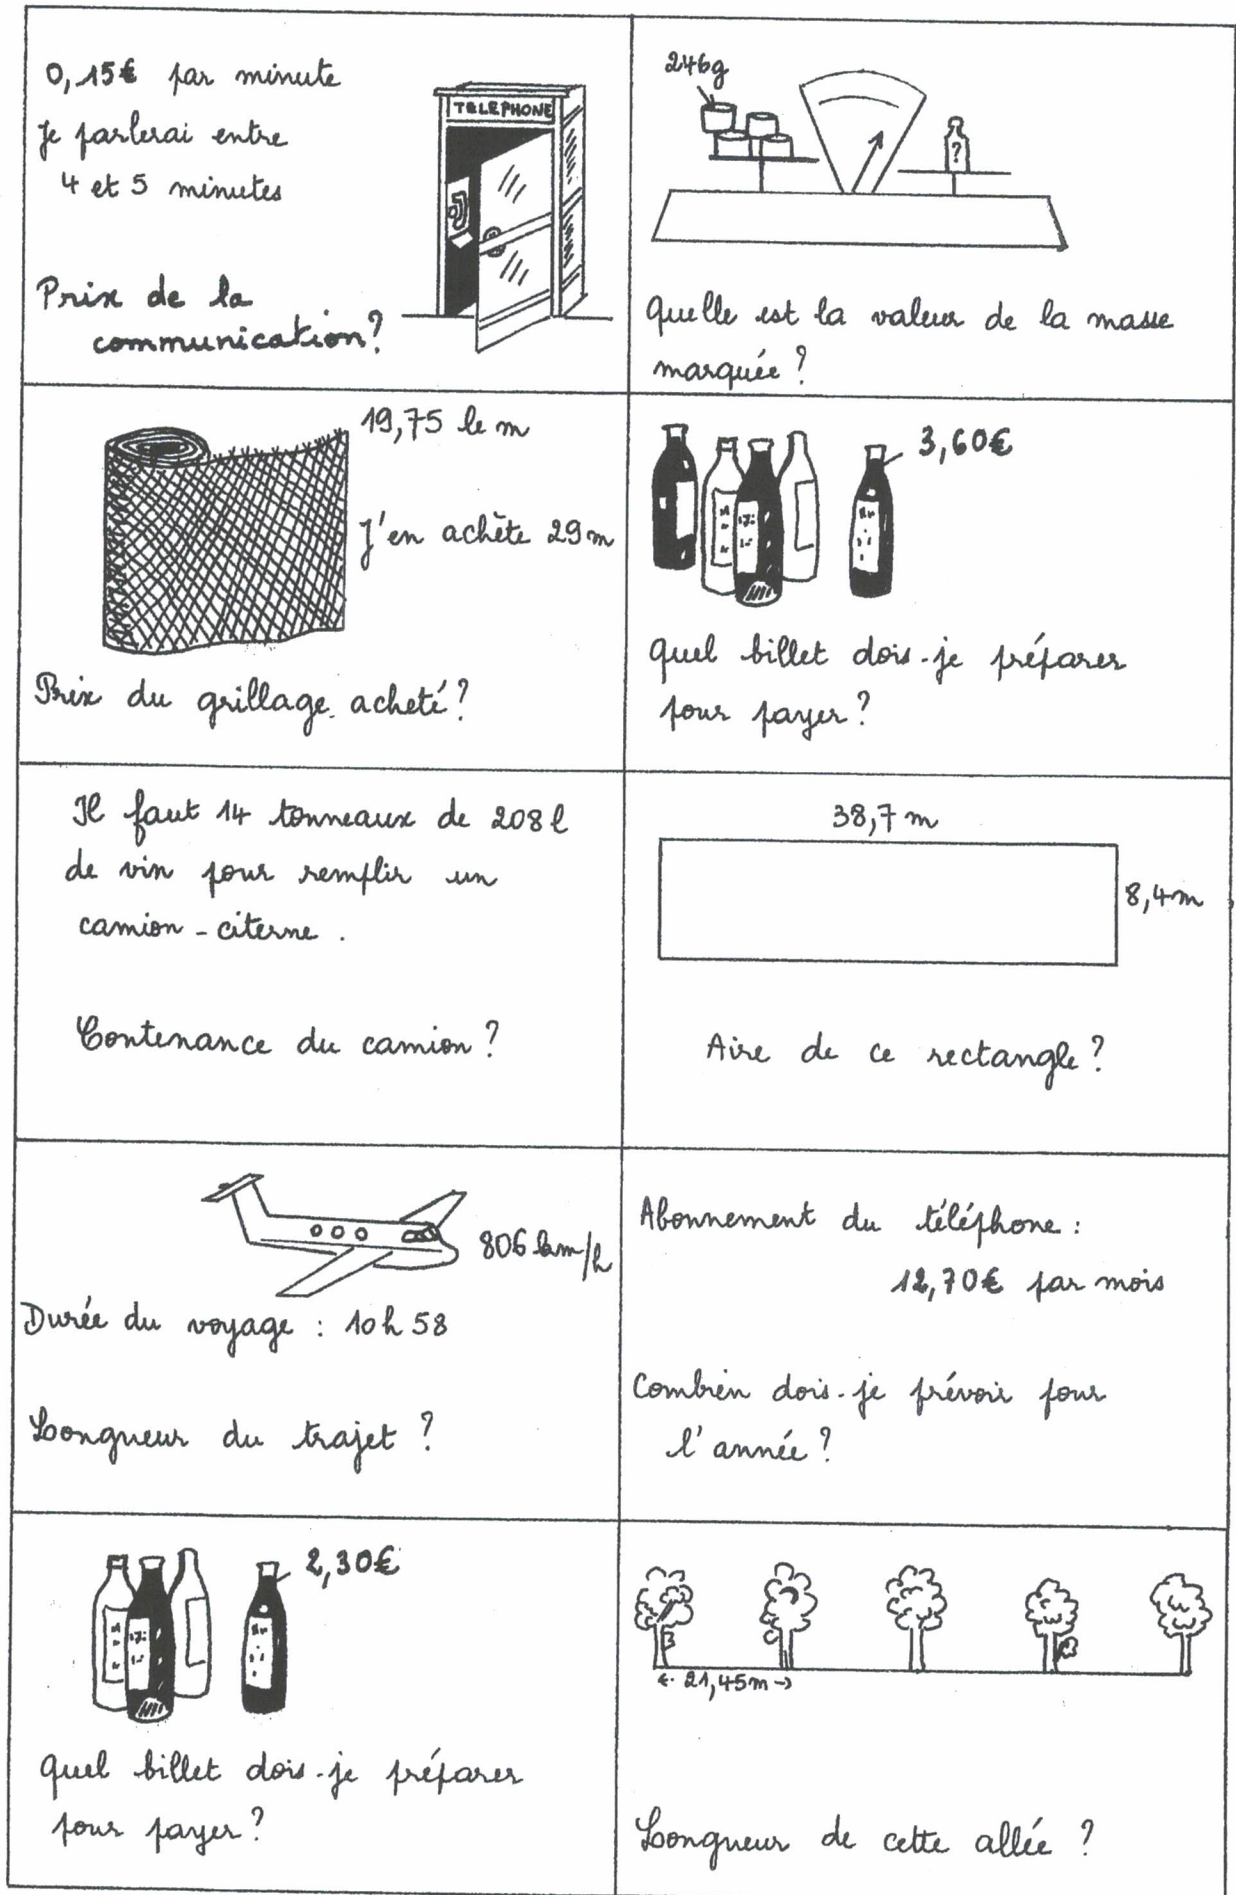 0,15€ par minute
Je parlerai entre
4 et 5 minutes
TELEPHONE
Prix de la
communication?
246g
?
Quelle est la valeur de la masse
marquée ?
19,75 le m
J'en achète 29m
Prix du grillage acheté?
3,60€
Quel billet dois-je préparer
pour payer?
Il faut 14 tonneaux de 208 l
de vin pour remplir un
camion-citerne.
Contenance du camion?
38,7 m
8,4m
Aire de ce rectangle?
806 km/h
Durée du voyage : 10 h 58
Longueur du trajet ?
Abonnement du téléphone :
12,70€ par mois
Combien dois-je prévoir pour
l'année ?
2,30€
Quel billet dois-je préparer
pour payer?
21,45m
Longueur de cette allée ?